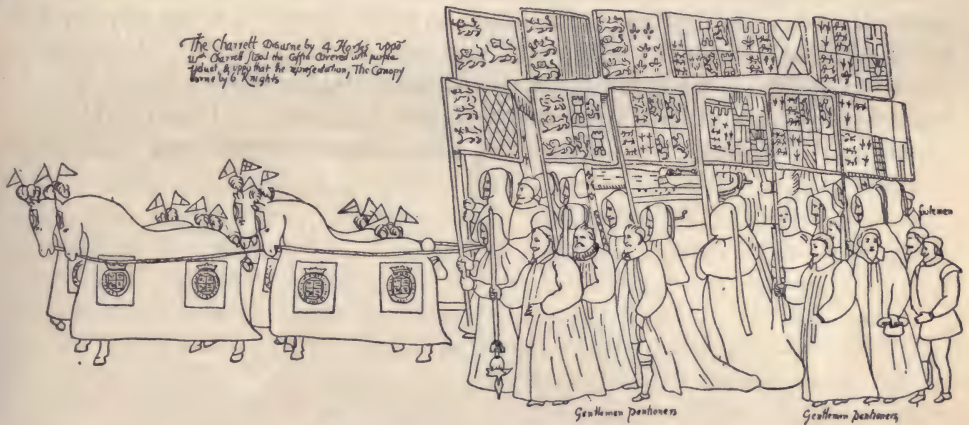 The Charrett Drawne by 4 Horses uppõ
wch Charrett stood the Coffin Covered wth purple
Veluet & uppõ that the representation, The Canopy
borne by 6 Knights
footemen
Gentlemen Pentioners
Gentlemen Pentioners